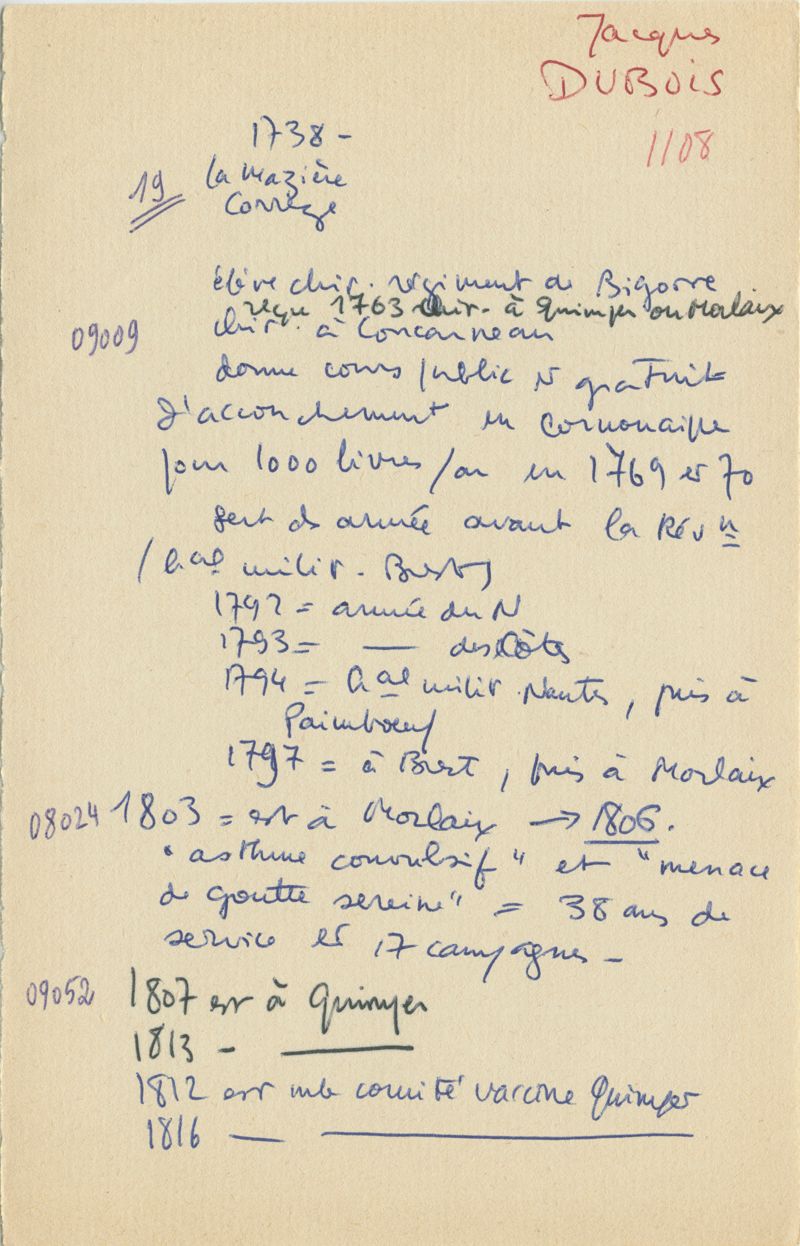 Jacques
DUBOIS
1108
1738 -
19 la Mazière
Corrèze
élève chir. régiment de Bigorre
reçu 1763 chir. à Quimper ou Morlaix
09009 chir. à Concarneau
donne cours public et gratuit
d'accouchement en Cornouaille
pour 1000 livres/an en 1769 et 70
sert ds armée avant la Rév n
/hal milit. Brest/
1792 = armée du N
1793 = — des Côtes
1794 = hal milit. Nantes, puis à
Paimboeuf
1797 = à Brest, puis à Morlaix
08024 1803 = est à Morlaix → 1806.
"asthme convulsif" et "menace
de goutte sereine" = 38 ans de
service et 17 campagnes -
09052 1807 est à Quimper
1813 - —
1812 est mb comité vaccine Quimper
1816 — —